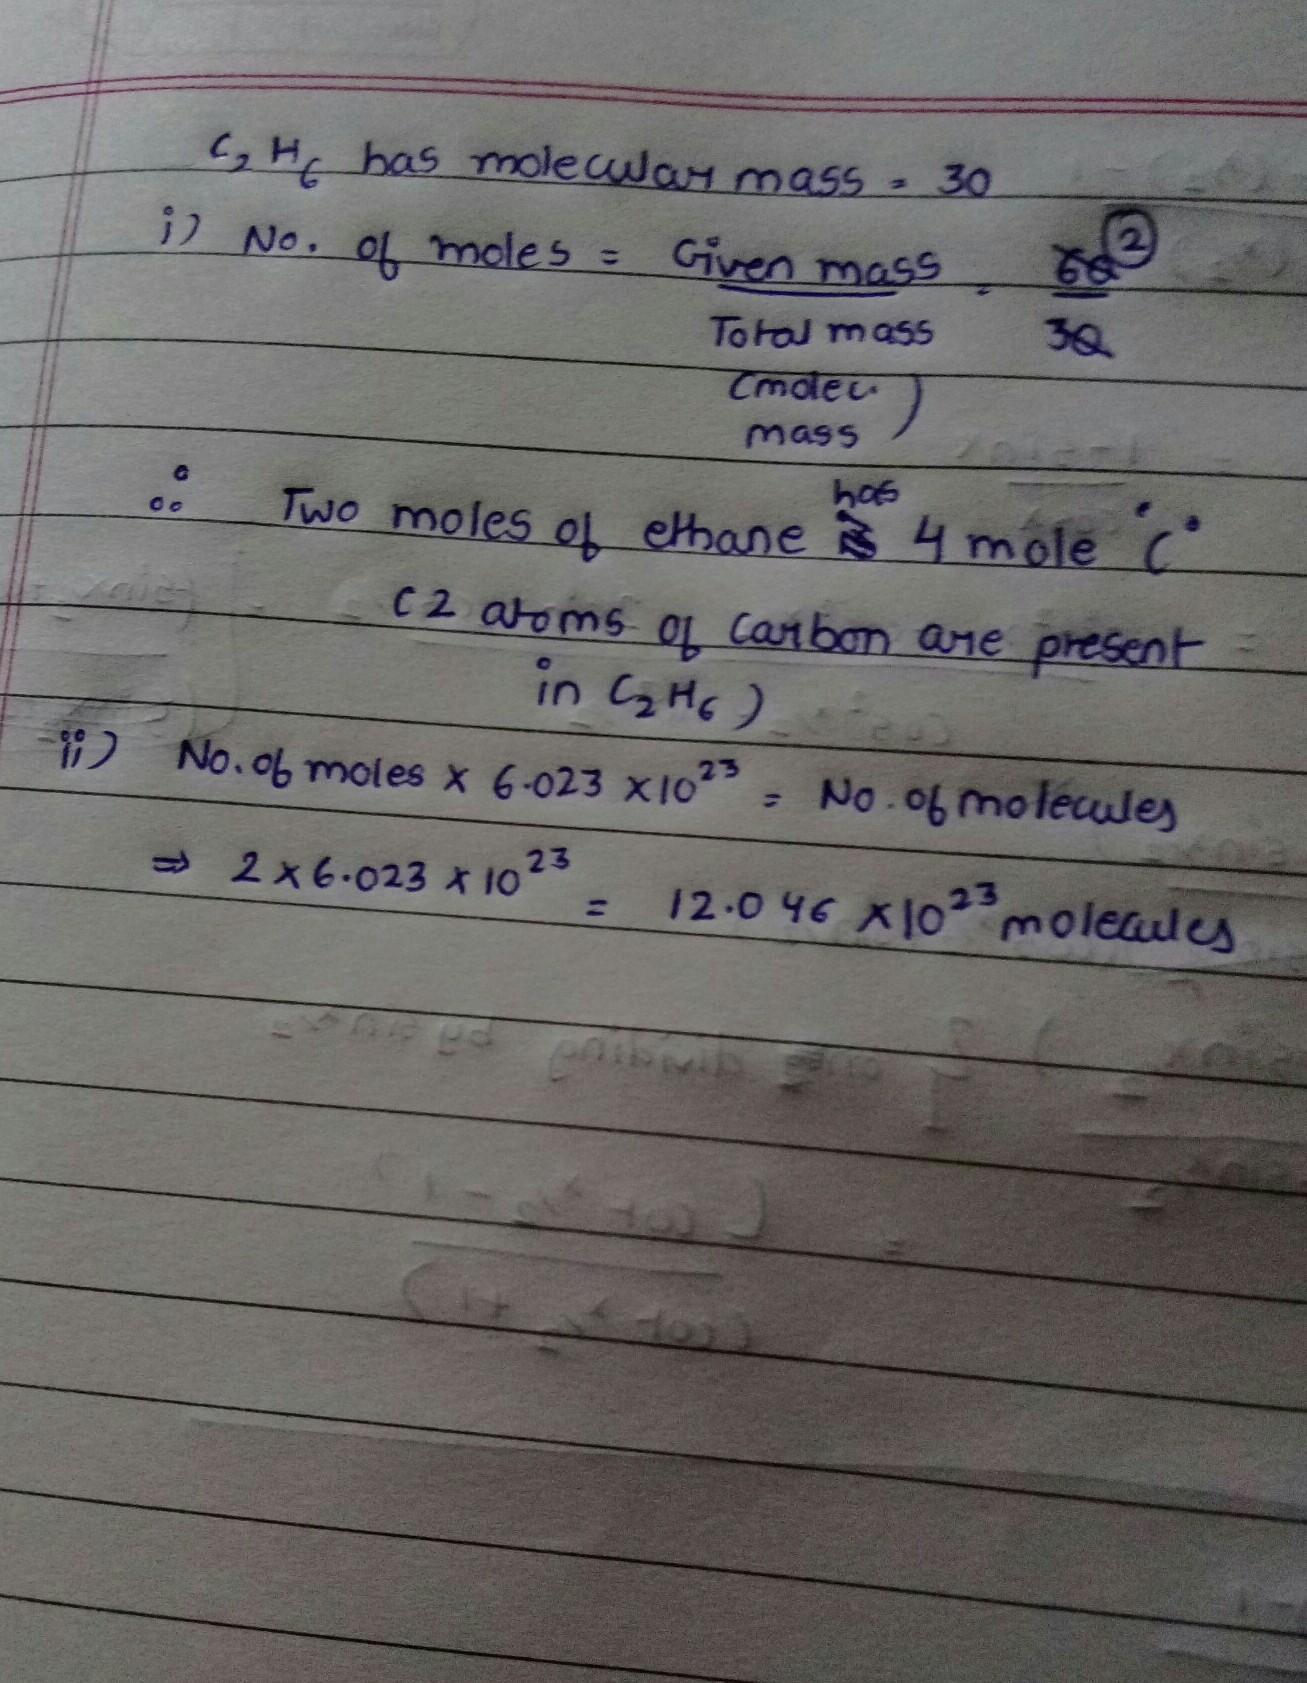 C2H6 has molecular mass = 30
i) No. of moles = Given mass = 60 2
Total mass 30
(molec. mass)
∴ Two moles of ethane has 4 mole 'C'
(2 atoms of carbon are present
in C2H6)
ii) No. of moles x 6.023 x 10^23 = No. of molecules
⇒ 2 x 6.023 x 10^23 = 12.046 x 10^23 molecules